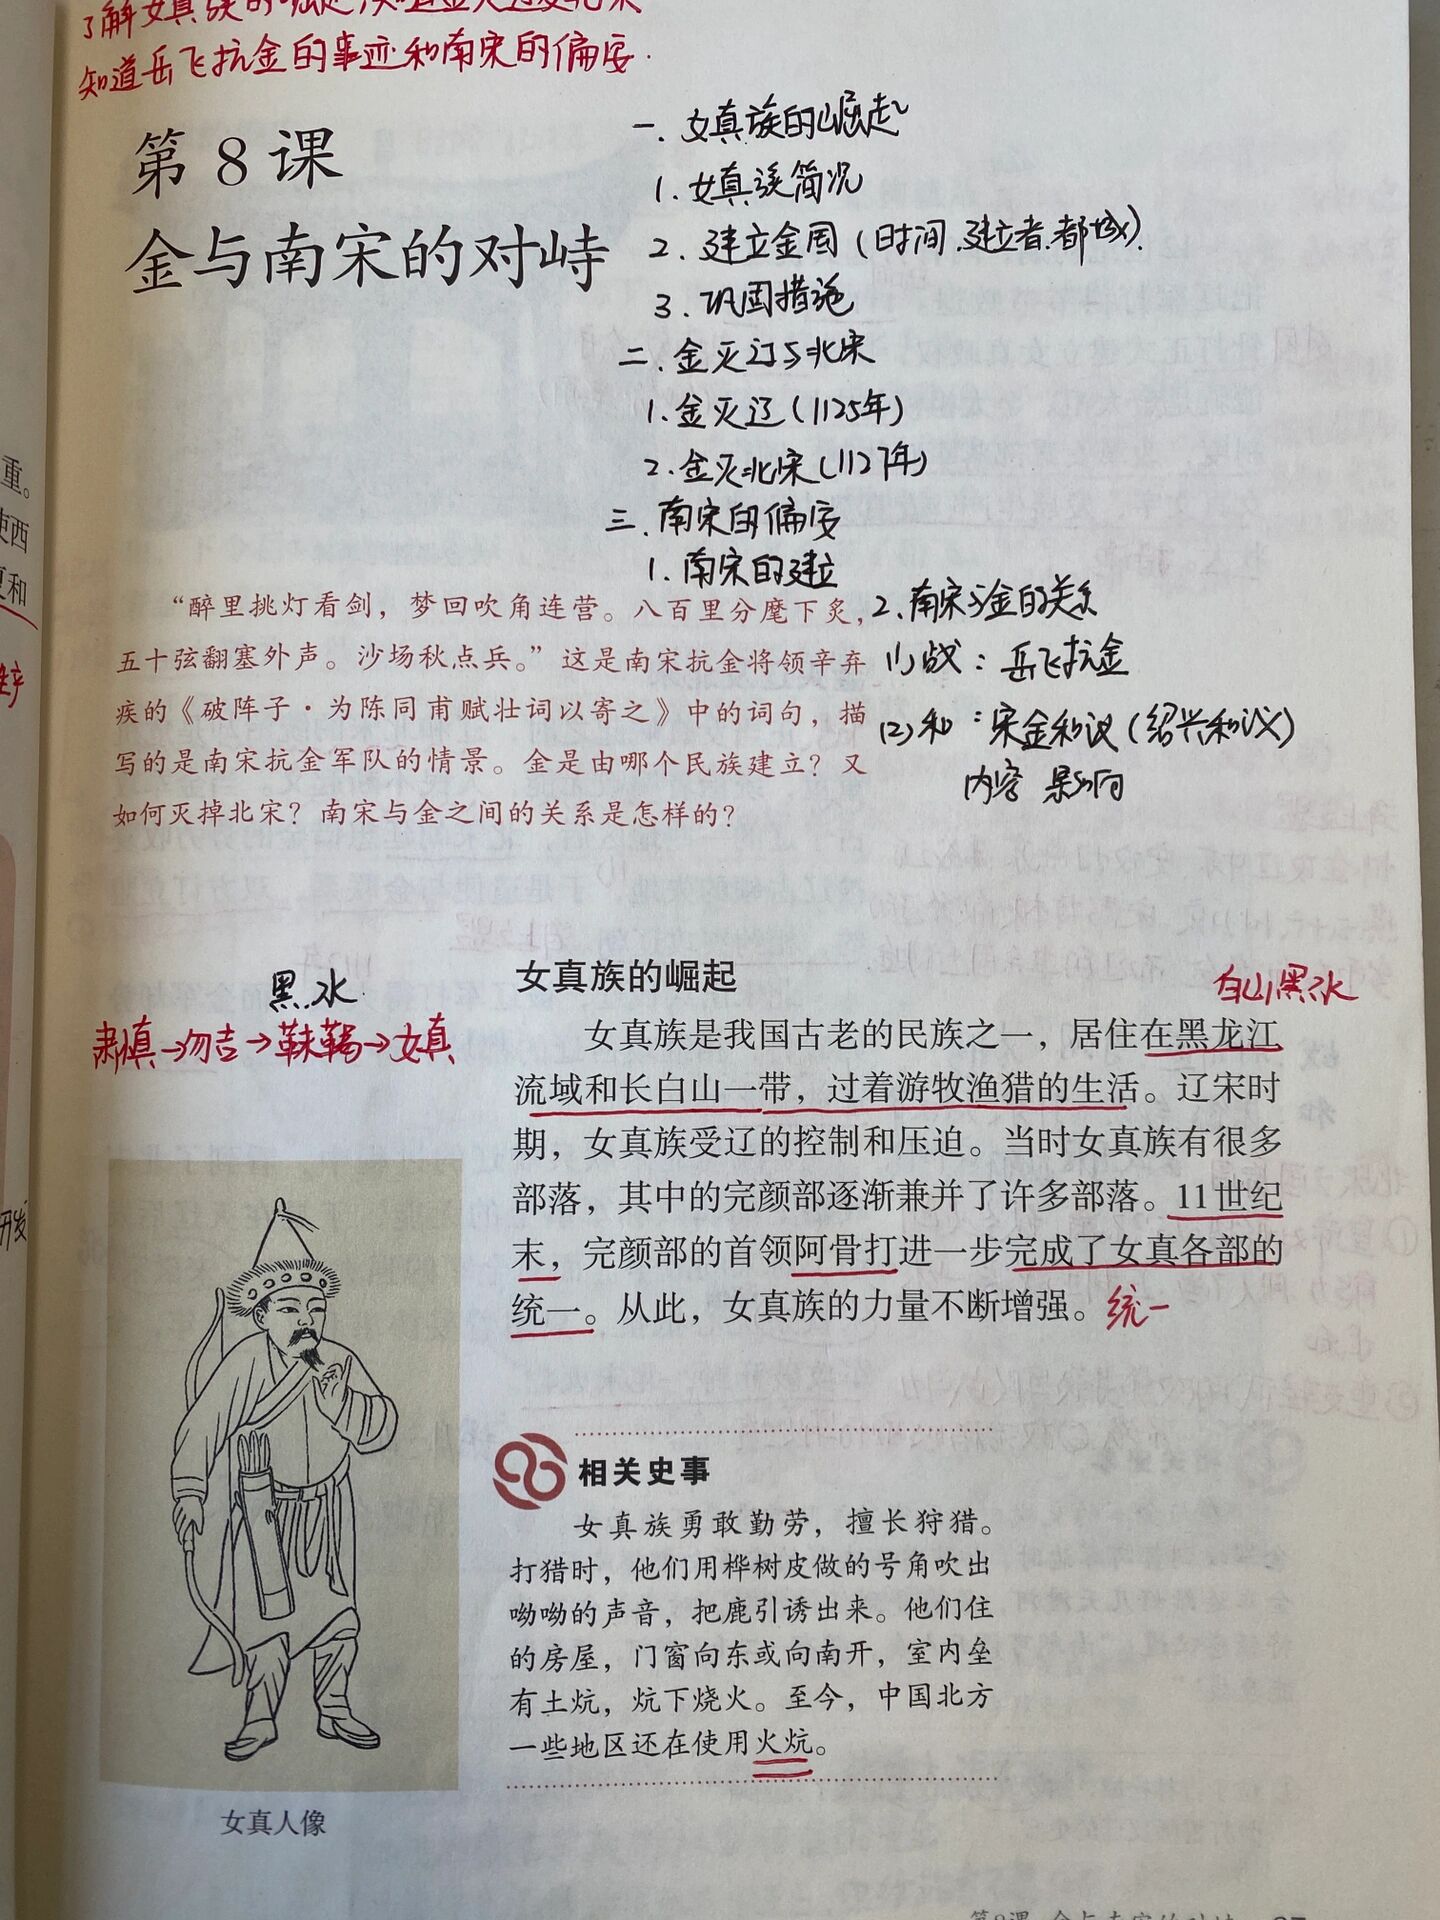 知道岳飞抗金的事迹和南宋的偏安.
第 8 课
金与南宋的对峙
一. 女真族的崛起
1. 女真族简况
2. 建立金国(时间.建立者.都城).
3. 巩固措施
二. 金灭辽与北宋
1. 金灭辽(1125年)
2. 金灭北宋(1127年)
三. 南宋的偏安
1. 南宋的建立
2. 南宋与金的关系
(1)战: 岳飞抗金
(2)和: 宋金和议(绍兴和议)
内容 影响
“醉里挑灯看剑，梦回吹角连营。八百里分麾下炙，
五十弦翻塞外声。沙场秋点兵。”这是南宋抗金将领辛弃
疾的《破阵子·为陈同甫赋壮词以寄之》中的词句，描
写的是南宋抗金军队的情景。金是由哪个民族建立？又
如何灭掉北宋？南宋与金之间的关系是怎样的？
重。
使西
夏和
开发
女真族的崛起
白山黑水
黑水
肃慎→勿吉→靺鞨→女真
女真族是我国古老的民族之一，居住在黑龙江
流域和长白山一带，过着游牧渔猎的生活。辽宋时
期，女真族受辽的控制和压迫。当时女真族有很多
部落，其中的完颜部逐渐兼并了许多部落。11世纪
末，完颜部的首领阿骨打进一步完成了女真各部的
统一。从此，女真族的力量不断增强。统一
相关史事
女真族勇敢勤劳，擅长狩猎。
打猎时，他们用桦树皮做的号角吹出
呦呦的声音，把鹿引诱出来。他们住
的房屋，门窗向东或向南开，室内垒
有土炕，炕下烧火。至今，中国北方
一些地区还在使用火炕。
女真人像